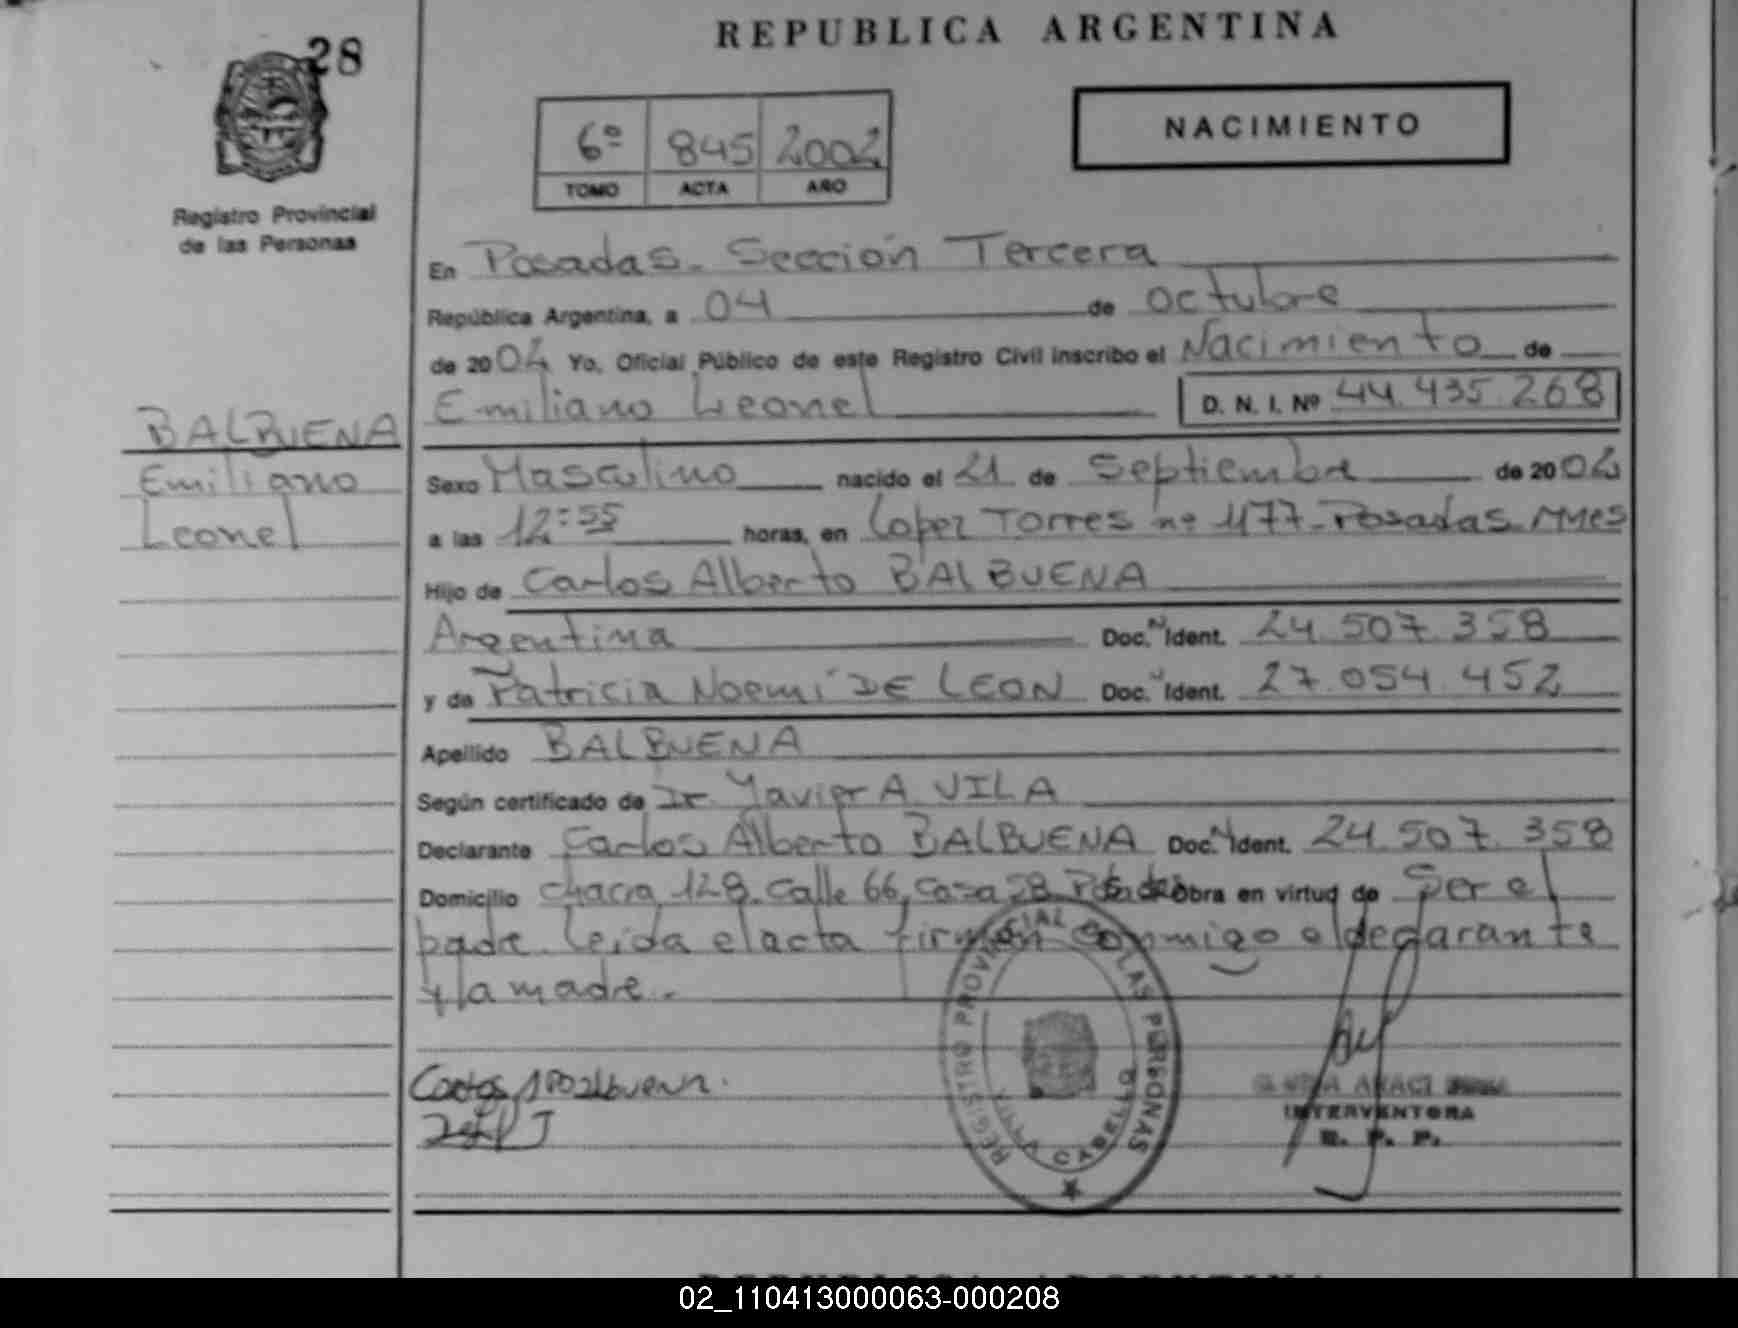 28
REPUBLICA ARGENTINA
NACIMIENTO
6º 845 2002
TOMO ACTA AÑO
Registro Provincial
de las Personas
En Posadas. Sección Tercera
República Argentina, a 04 de octubre
de 2002 Yo, Oficial Público de este Registro Civil inscribo el Nacimiento de
Emiliano Leonel D. N. I. Nº 44.435.268
BALBUENA
Emiliano
Leonel
Sexo Masculino nacido el 21 de Septiembre de 2002
a las 12:55 horas, en Lopez Torres nº 1177-Posadas Mnes
Hijo de Carlos Alberto BALBUENA
Argentina Doc. N Ident. 24.507.358
y de Patricia Noemí DE LEON Doc. N Ident. 27.054.452
Apellido BALBUENA
Según certificado de Dr. Yavier A VILA
Declarante Carlos Alberto BALBUENA Doc. N Ident. 24.507.358
Domicilio chacra 128. calle 66, casa 28 Posadas Obra en virtud de Ser el
padre. Leida el acta firman conmigo el declarante
y la madre.
REGISTRO PROVINCIAL DE LAS PERSONAS
VILLA CABELLO
INTERVENTORA
R. P. P.
02_110413000063-000208